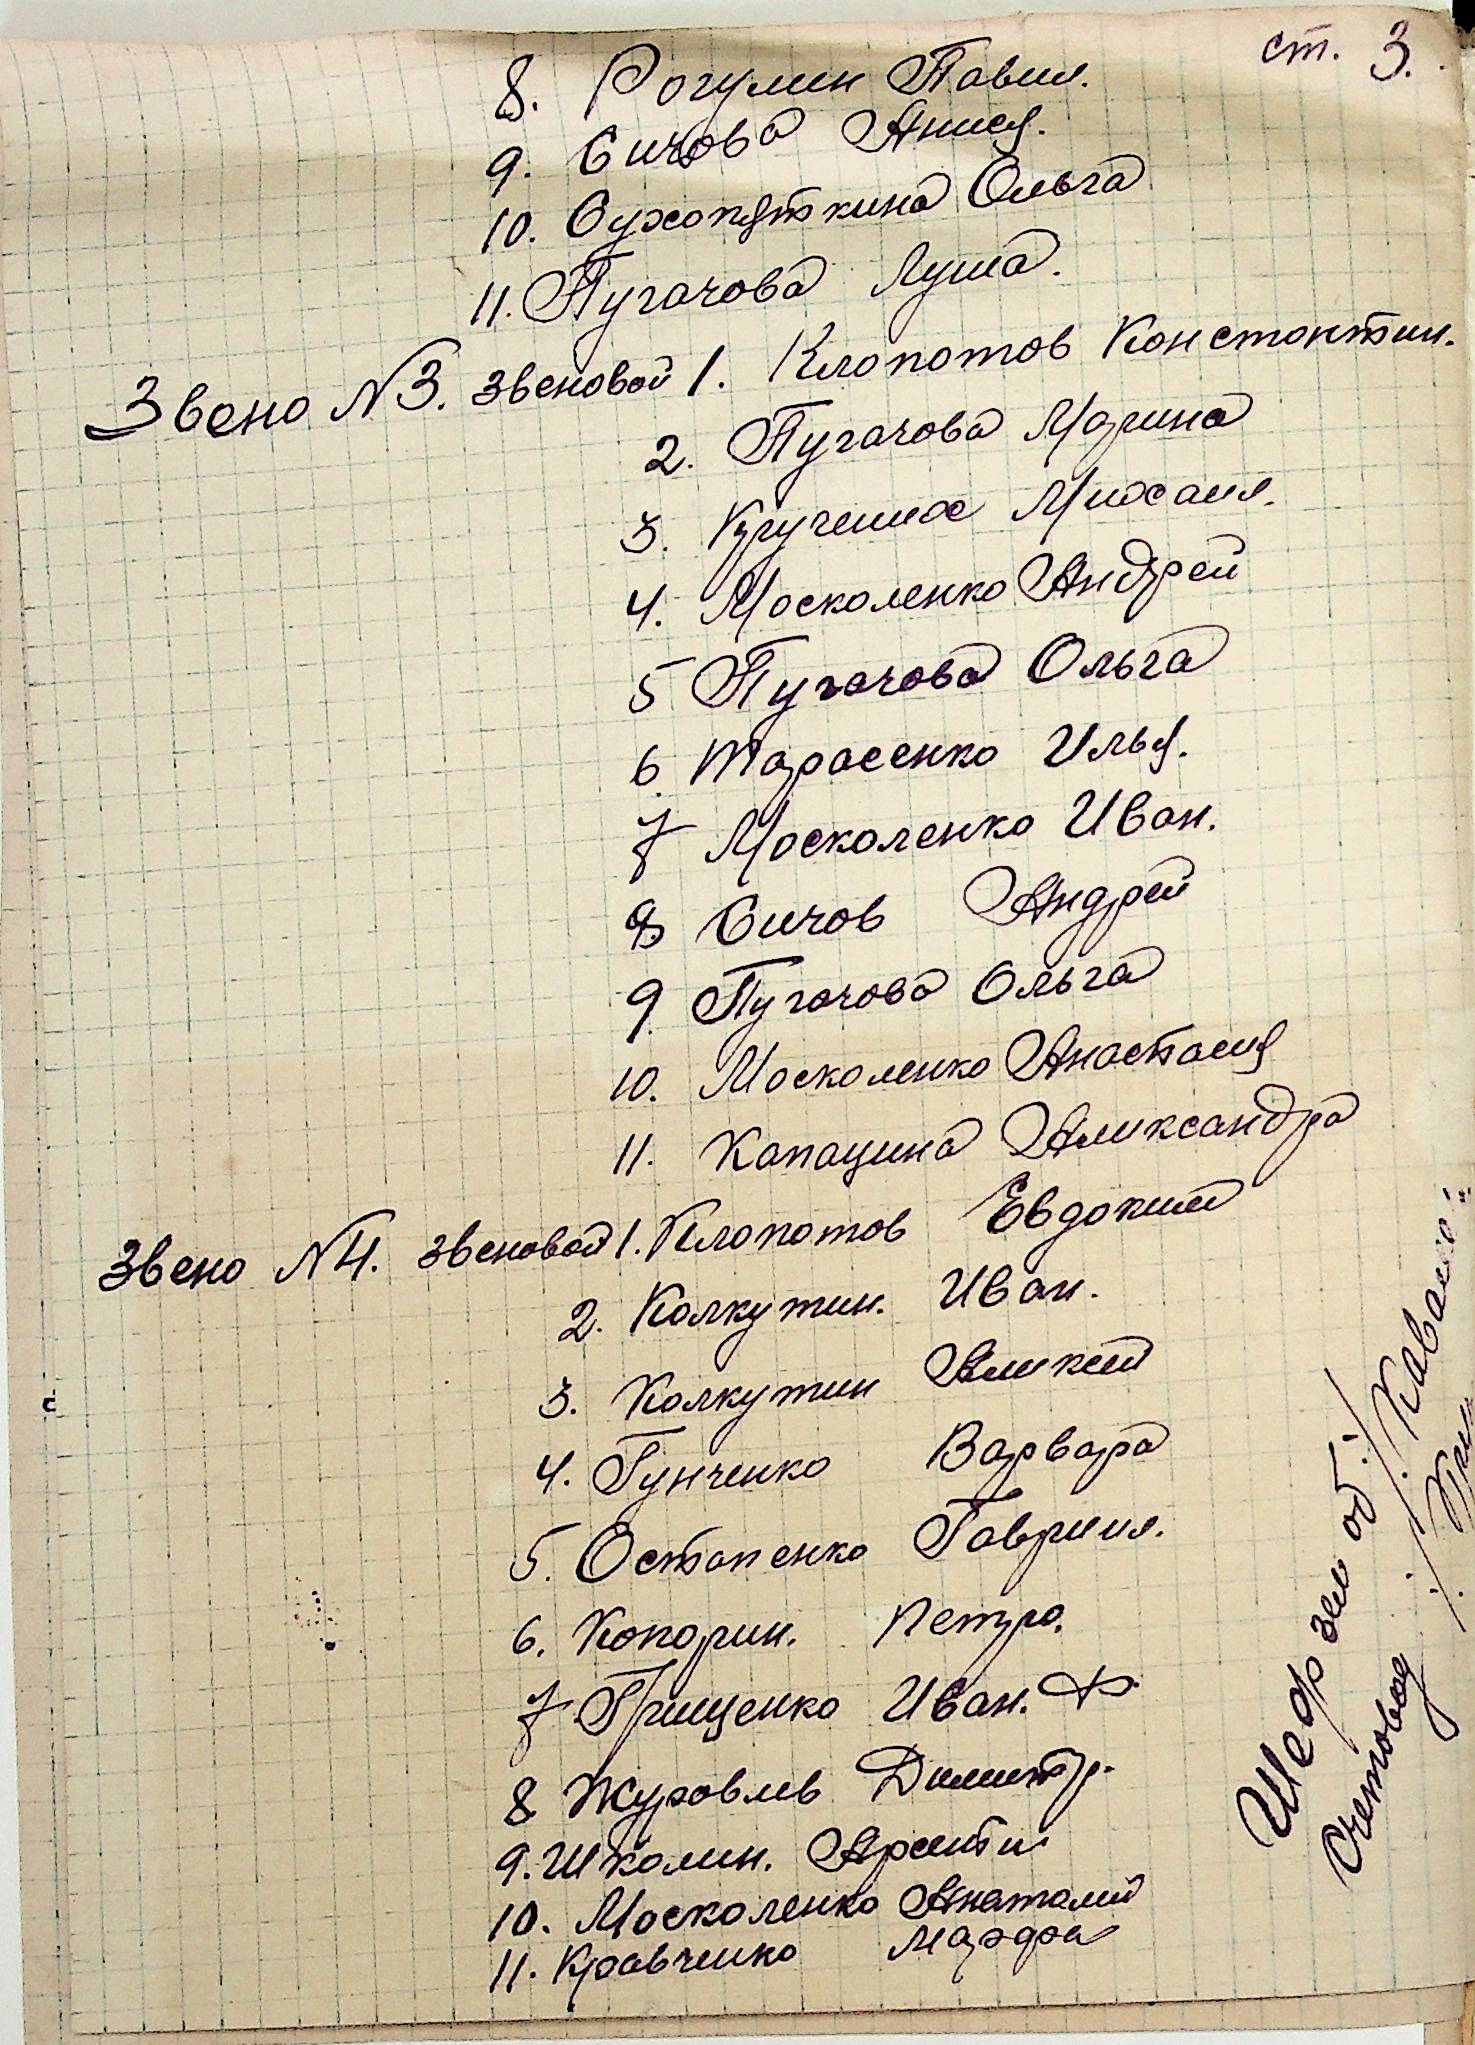 ст. 3.
8. Рогулин Павил.
9. Сичова Анися.
10. Сухопяткина Ольга
11. Пугачова Луша.
Звено №3. звеновой 1. Клопотов Константин.
2. Пугачова Марина
3. Крученых Михаил.
4. Москаленко Андрей
5 Пугачова Ольга
6 Тарасенко Илья.
7 Москаленко Иван.
8 Сичов Андрей
9 Пугачова Ольга
10. Москаленко Анастасия
11. Капацина Александра
Звено №4. звеновой 1. Клопотов Евдоким
2. Калкутин. Иван.
3. Калкутин Аликсей
4. Гунченко Варвара
5. Остапенко Гавриил.
6. Копорин. Петро.
7 Грищенко Иван. Ф.
8 Журовлев Димитр.
9. Школин. Арсенти
10. Москаленко Анатолий
11. Кравченко Марфа
Шеф зем об. /Каванко
Счетовод